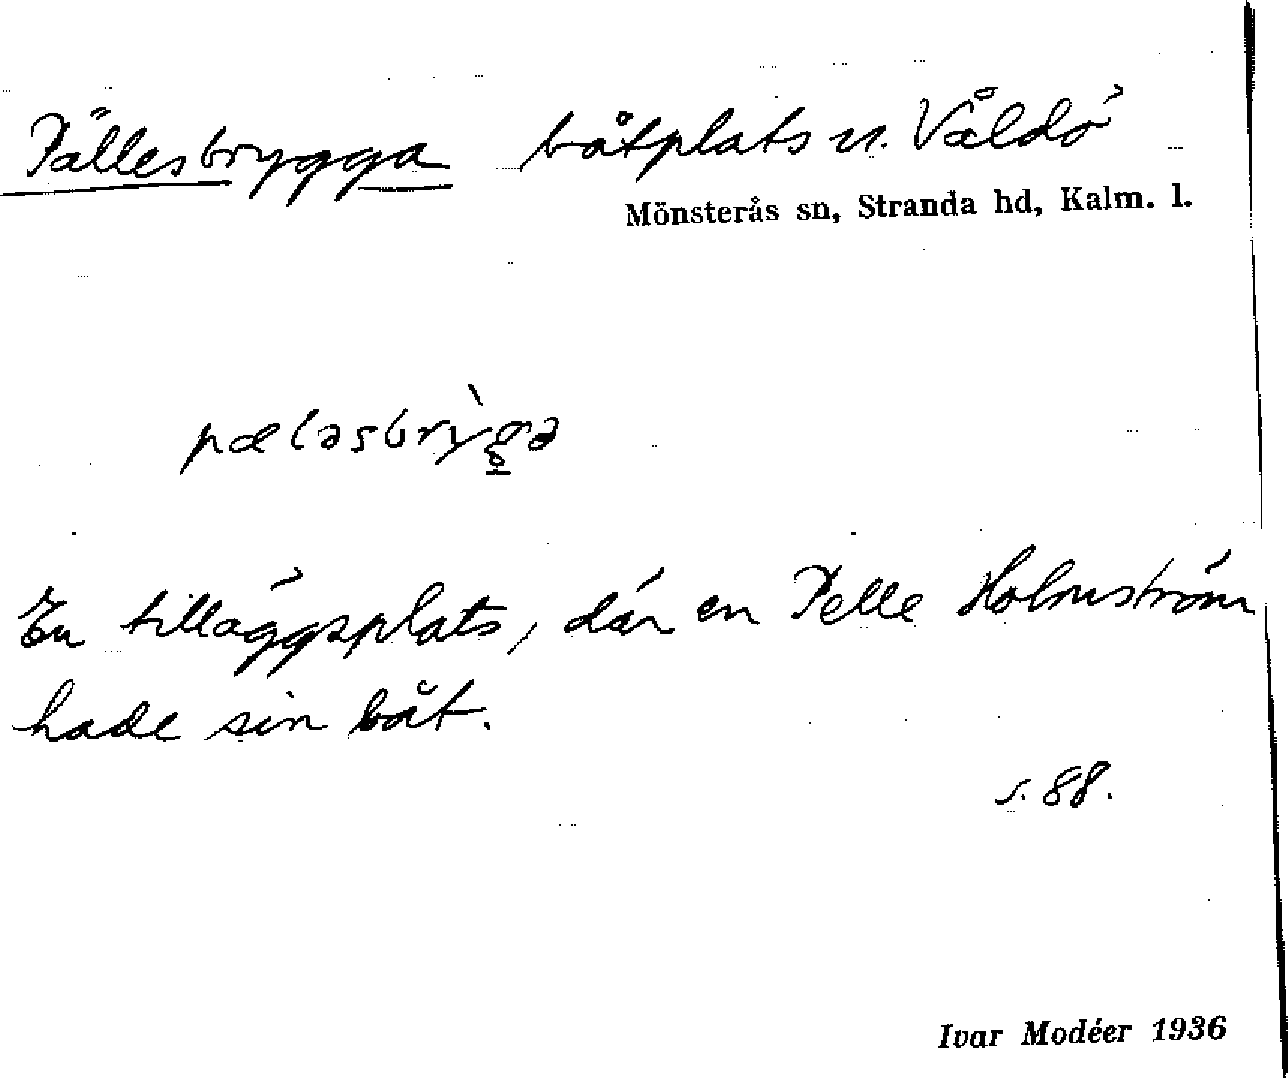 Pällesbrygga båtplats n. Våldö
Mönsterås sn, Stranda hd, Kalm. l.
pæləsbrỳgə
En tilläggsplats, där en Pelle Holmström
hade sin båt.
s. 88.
Ivar Modéer 1936